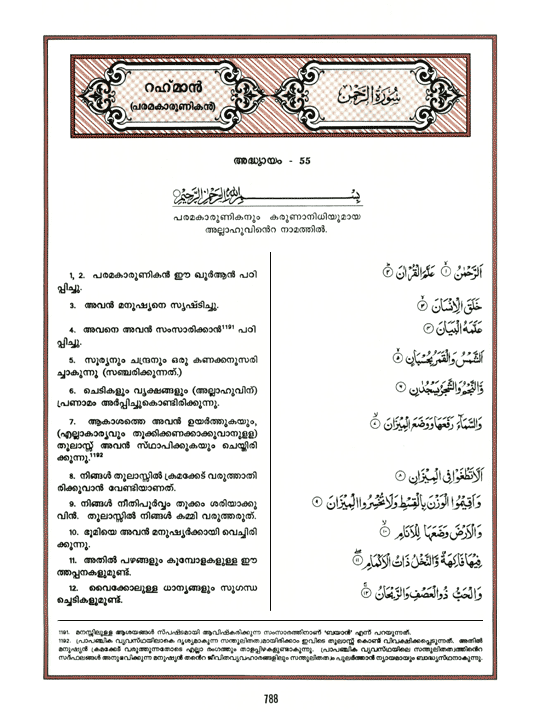 റഹ്‌മാൻ
(പരമകാരുണികൻ)
سُورَةُ الرَّحْمٰن
അദ്ധ്യായം - 55
بِسْمِ اللهِ الرَّحْمٰنِ الرَّحِيْمِ
പരമകാരുണികനും കരുണാനിധിയുമായ
അല്ലാഹുവിൻെറ നാമത്തിൽ.
1, 2. പരമകാരുണികൻ ഈ ഖുർആൻ പഠി
പ്പിച്ചു.
3. അവൻ മനുഷ്യനെ സൃഷ്ടിച്ചു.
4. അവനെ അവൻ സംസാരിക്കാൻ1191 പഠി
പ്പിച്ചു.
5. സൂര്യനും ചന്ദ്രനും ഒരു കണക്കനുസരി
ച്ചാകുന്നു (സഞ്ചരിക്കുന്നത്.)
6. ചെടികളും വൃക്ഷങ്ങളും (അല്ലാഹുവിന്)
പ്രണാമം അർപ്പിച്ചുകൊണ്ടിരിക്കുന്നു.
7. ആകാശത്തെ അവൻ ഉയർത്തുകയും,
(എല്ലാകാര്യവും തൂക്കിക്കണക്കാക്കുവാനുളള)
തുലാസ്സ് അവൻ സ്ഥാപിക്കുകയും ചെയ്തിരി
ക്കുന്നു.1192
8. നിങ്ങൾ തുലാസ്സിൽ ക്രമക്കേട് വരുത്താതി
രിക്കുവാൻ വേണ്ടിയാണത്.
9. നിങ്ങൾ നീതിപൂർവ്വം തൂക്കം ശരിയാക്കു
വിൻ. തുലാസ്സിൽ നിങ്ങൾ കമ്മി വരുത്തരുത്.
10. ഭൂമിയെ അവൻ മനുഷ്യർക്കായി വെച്ചിരി
ക്കുന്നു.
11. അതിൽ പഴങ്ങളും കൂമ്പോളകളുള്ള ഈ
ത്തപ്പനകളുമുണ്ട്.
12. വൈക്കോലുള്ള ധാന്യങ്ങളും സുഗന്ധ
ച്ചെടികളുമുണ്ട്.
اَلرَّحْمٰنُ ۙ۱ عَلَّمَ الْقُرْاٰنَ ۲
خَلَقَ الْاِنْسَانَ ۳
عَلَّمَهُ الْبَيَانَ ۴
اَلشَّمْسُ وَالْقَمَرُ بِحُسْبَانٍ ۵
وَّالنَّجْمُ وَالشَّجَرُ يَسْجُدٰنِ ۶
وَالسَّمَآءَ رَفَعَهَا وَوَضَعَ الْمِيْزَانَ ۷
اَلَّا تَطْغَوْا فِى الْمِيْزَانِ ۸
وَاَقِيْمُوا الْوَزْنَ بِالْقِسْطِ وَلَا تُخْسِرُوا الْمِيْزَانَ ۹
وَالْاَرْضَ وَضَعَهَا لِلْاَنَامِ ۱۰
فِيْهَا فَاكِهَةٌ وَّالنَّخْلُ ذَاتُ الْاَكْمَامِ ۱۱
وَالْحَبُّ ذُو الْعَصْفِ وَالرَّيْحَانُ ۱۲
1191. മനസ്സിലുള്ള ആശയങ്ങൾ സ്പഷ്ടമായി ആവിഷ്കരിക്കുന്ന സംസാരത്തിനാണ് 'ബയാൻ' എന്ന് പറയുന്നത്.
1192. പ്രാപഞ്ചിക വ്യവസ്ഥയിലാകെ ദൃശ്യമാകുന്ന സന്തുലിതത്വമായിരിക്കാം ഇവിടെ തുലാസ്സ് കൊണ്ട് വിവക്ഷിക്കപ്പെടുന്നത്. അതിൽ
മനുഷ്യൻ ക്രമക്കേട് വരുത്തുന്നതോടെ എല്ലാ രംഗത്തും താളപ്പിഴകളുണ്ടാകുന്നു. പ്രാപഞ്ചിക വ്യവസ്ഥയിലെ സന്തുലിതത്വത്തിൻെറ
സദ്ഫലങ്ങൾ അനുഭവിക്കുന്ന മനുഷ്യൻ തൻെറ ജീവിതവ്യവഹാരങ്ങളിലും സന്തുലിതത്വം പുലർത്താൻ ന്യായമായും ബാദ്ധ്യസ്ഥനാകുന്നു.
788